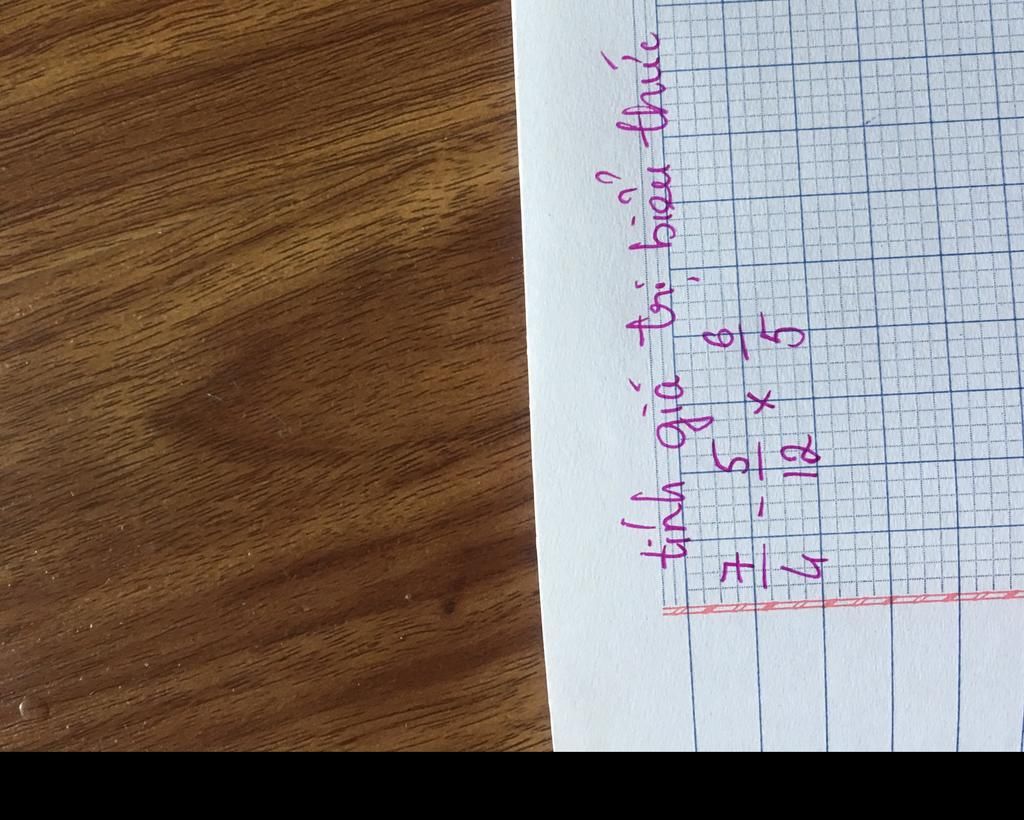 tính giá trị biểu thức
7/4 - 5/12 x 6/5